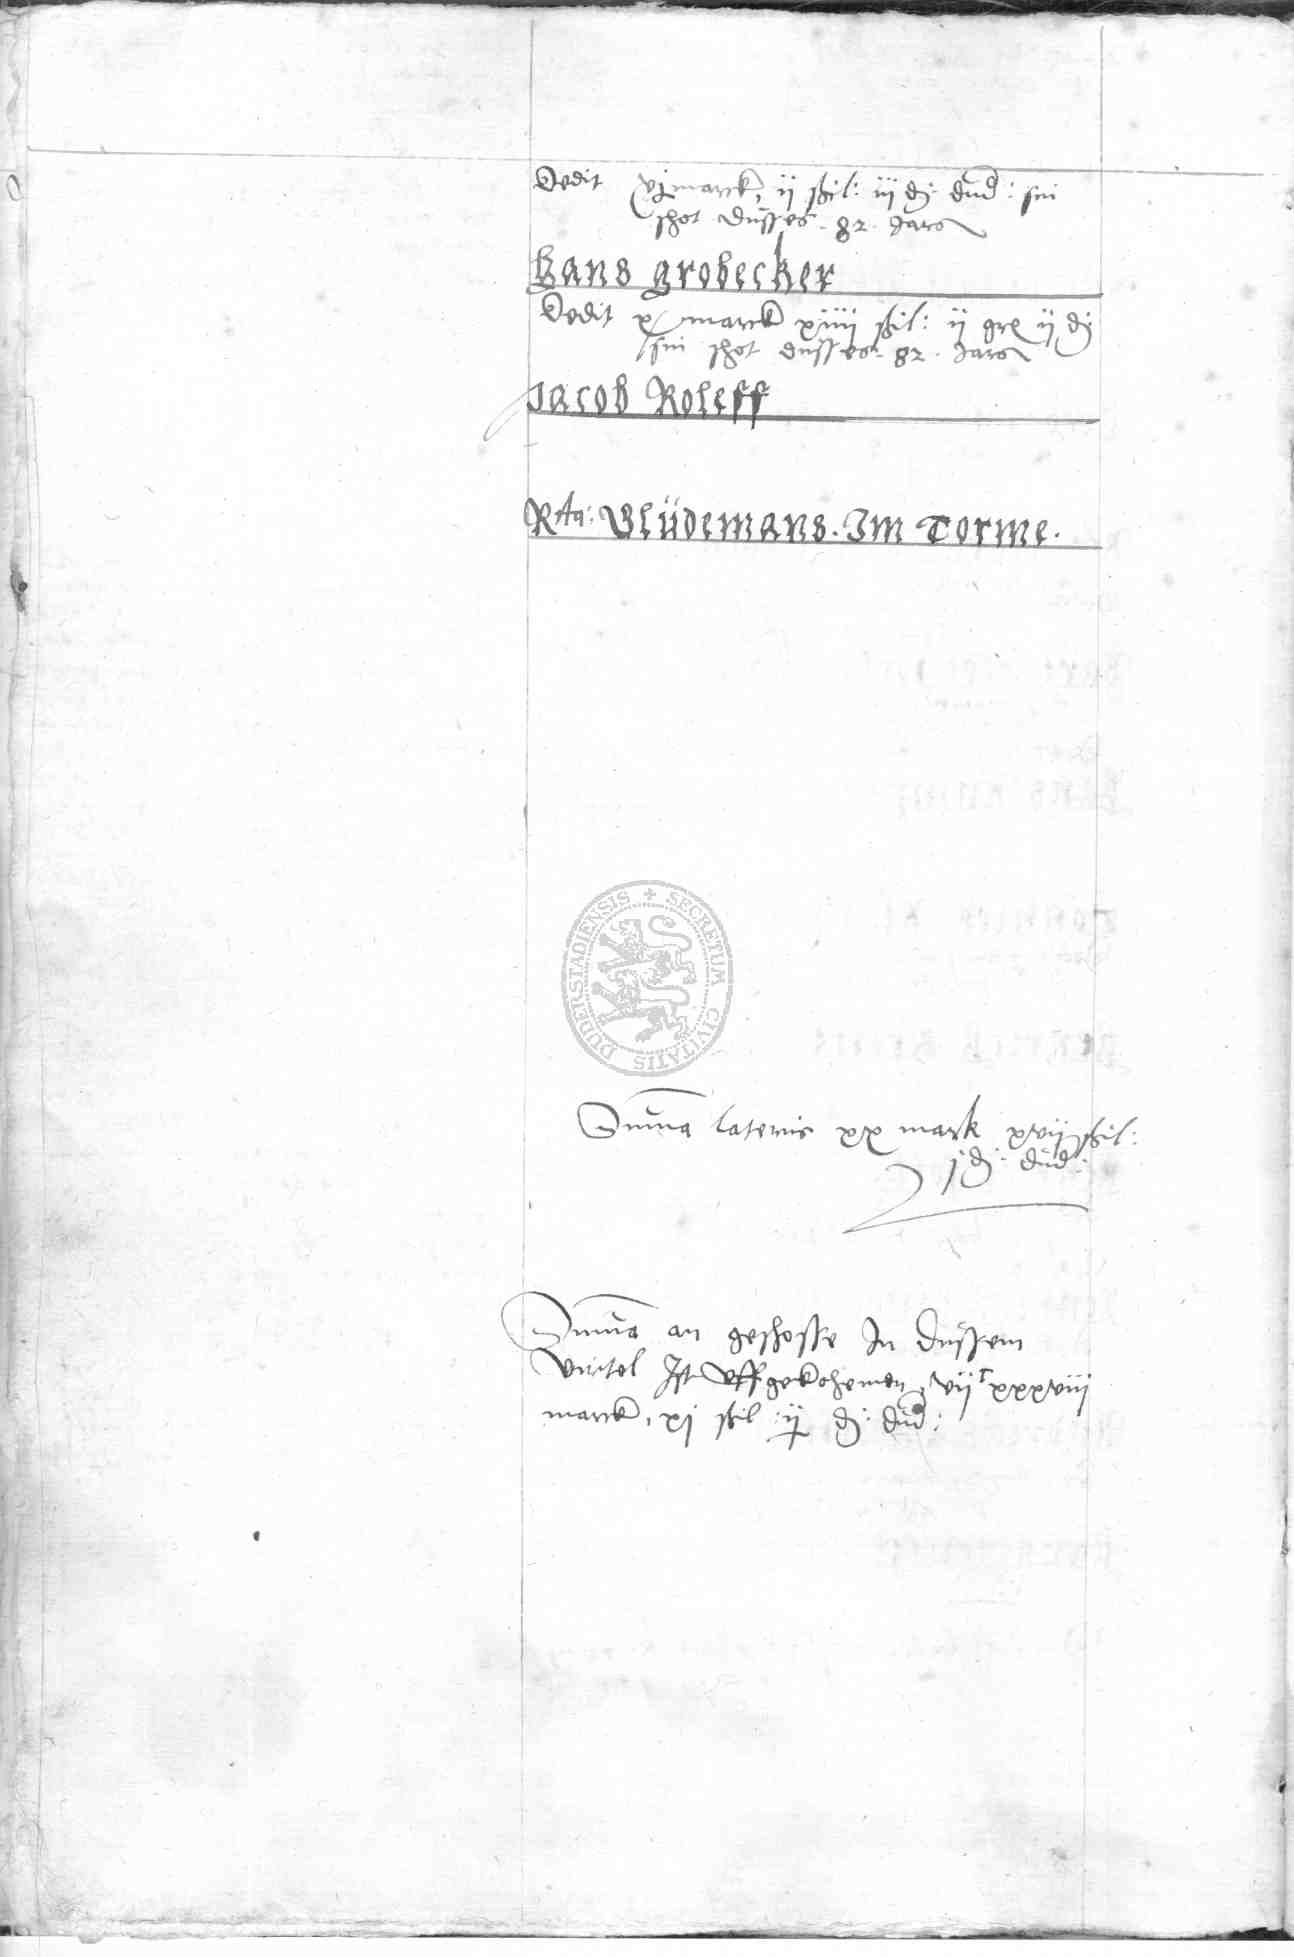 Dedit vj marck, ij shil: iij d: dud: sin
shot dusses . 82 . Jars
Hans Grobecker
Dedit x marck xiiij shil: ij gr ij d
sin shot dusses . 82 . Jars
Jacob Roleff
Blüdemans. Im Torme.
SECRETUM CIVITATIS DUDERSTADIENSIS
Summa lateris xx mark xvij shil:
j d: dud:
Summa an geshosse In dussem
virtel Ist uffgekohemen, vij c xxxviij
marck, xj shil: ij d: dud: